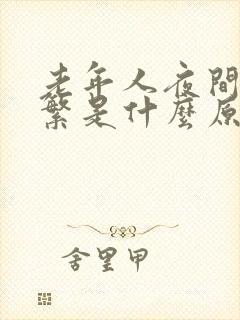 老年人夜間
繁是什麼原
舍里甲